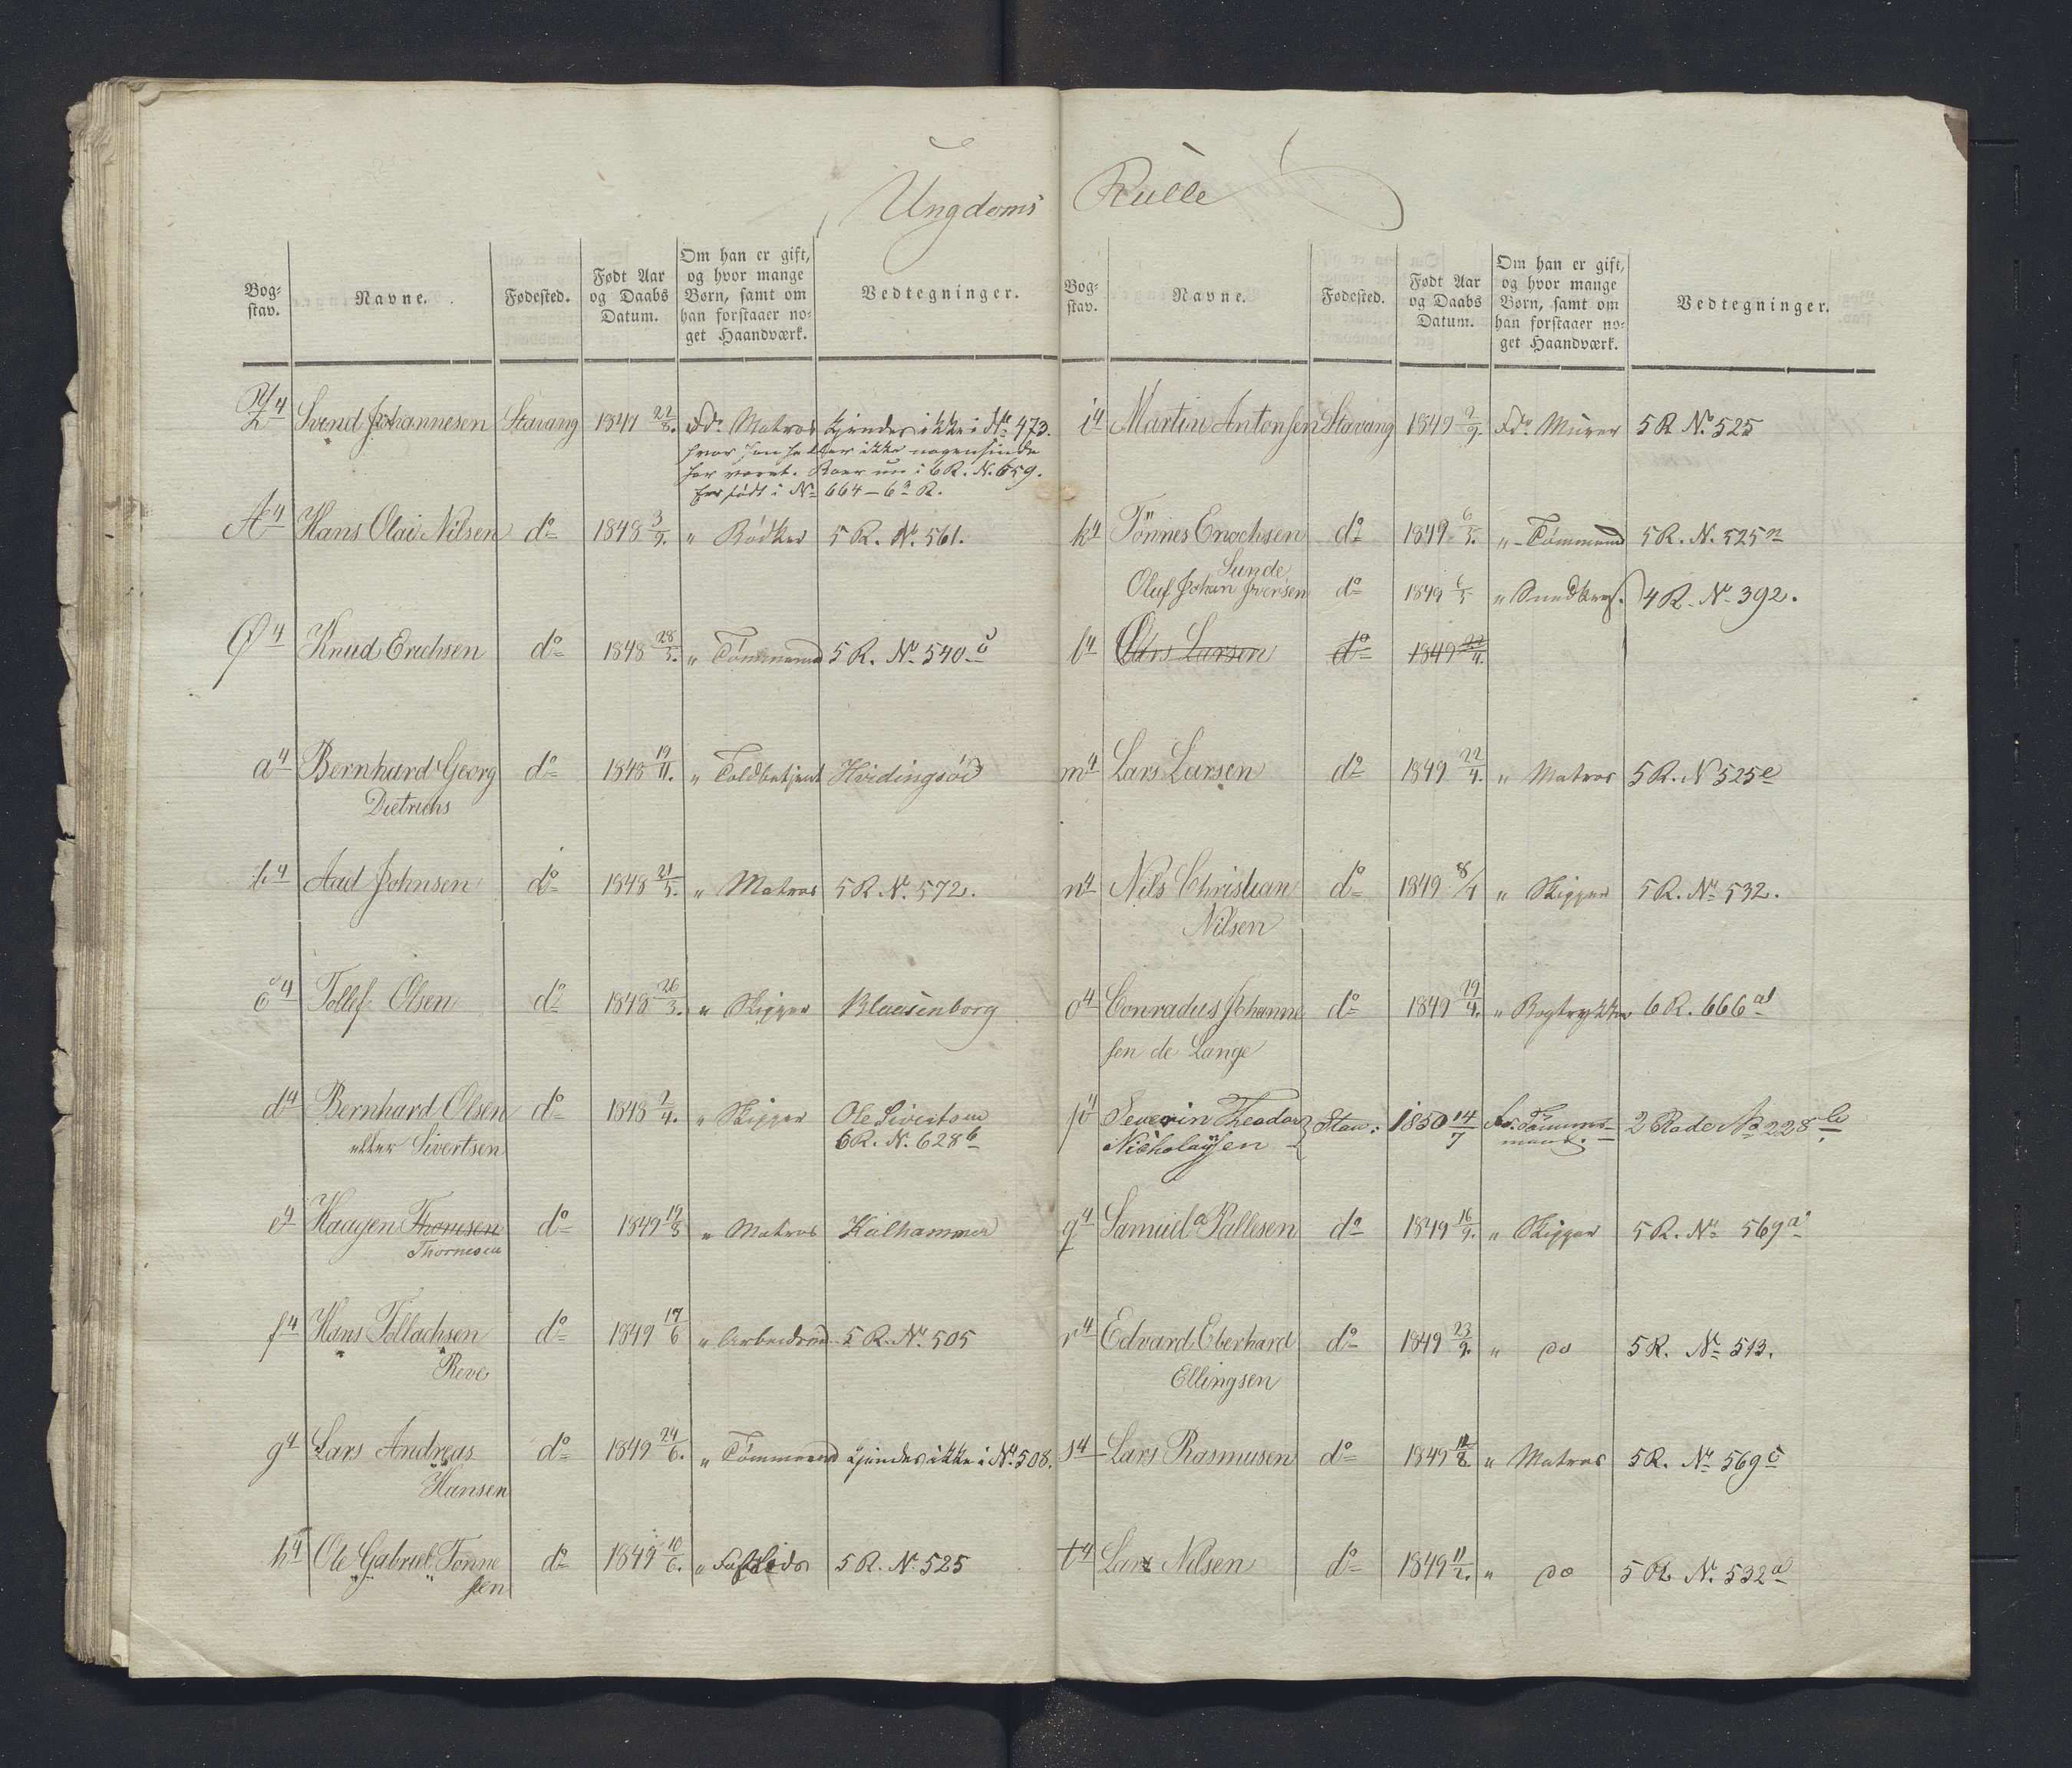 Ungdoms Rulle
Bog-
stav.
Navne.
Fødested.
Født Aar
og Daabs
Datum.
Om han er gift,
og hvor mange
Børn, samt om
han forstaaer no-
get Haandværk.
Vedtegninger.
Z 4 Svend Johannesen Stavang 1847 22/8. Fdr. Matros kjendes ikke i Nr 473.
hvor han heller ikke nogensinde
har været. Boer nu i 6 R. N. 659.
Er født i No 664 - 6te R.
Æ 4 Hans Olai Nilsen do 1848 3/9. " Bødker 5 R. Nr. 561.
Ø 4 Knud Erichsen do 1848 28/5. " Tømmemd 5 R. No 540. c
a 4 Bernhard Georg do 1848 19/11. " Toldbetjent Hvidingsöe
Dietrichs
b 4 Aad Johnsen do 1848 21/5. " Matros 5 R. Nr. 572.
c 4 Tollef Olsen do 1848 26/3. " Skipper Blaasenborg
d 4 Bernhard Olsen do 1848 2/4. " Skipper Ole Sivertsen
eller Sivertsen 6 R. N. 628 b
e 4 Haagen Thomesen do 1849 19/8 " Matros Kalhammer
Thornesen
f 4 Hans Tollachsen do 1849 17/6 " Arbeidsmd. 5 R. Nr. 505
Reve
g 4 Lars Andreas do 1849 24/6. " Tømmemd kjendes ikke i Nr. 508.
Hansen
h 4 Ole Gabriel Tønne do 1849 10/6. " 5 R. Nr. 525
sen
Bog-
stav.
Navne.
Fødested.
Født Aar
og Daabs
Datum.
Om han er gift,
og hvor mange
Børn, samt om
han forstaaer no-
get Haandværk.
Vedtegninger.
i 4 Martin Antonsen Stavang 1849 2/9. Fdr. Murer 5 R No. 525
k 4 Tönnes Enochsen do 1849 6/5. " Tømmemd 5 R. N. 525 n
Sunde
Oluf Johan Iversen do 1849 6/5 " Snedker. 4 R. No. 392.
l 4 Lars Larsen do 1849 22/4.
m 4 Lars Larsen do 1849 22/4. " Matros 5 R. N 525 e
n 4 Nils Christian do 1849 8/4 " Skipper 5 R. No 532.
Nilsen
o 4 Conradus Johanne do 1849 29/4. " Bogtrykker 6 R. 666 a
sen de Lange
p 4 Severin Theodor Stav: 1850 14/7 Fd. Tømmer-
Nicholaysen mand. 2 Rode No 228 b
q 4 Samuel Pallesen do 1849 16/9. " Skipper 5 R. No 569 a
r 4 Edvard Eberhard do 1849 23/9. " do 5 R. No 513.
Ellingsen
s 4 Lars Rasmusen do 1849 12/8. " Matros 5 R. Nr 569 c
t 4 Lars Nilsen do 1849 11/2. " do 5 R. Nr. 532 a